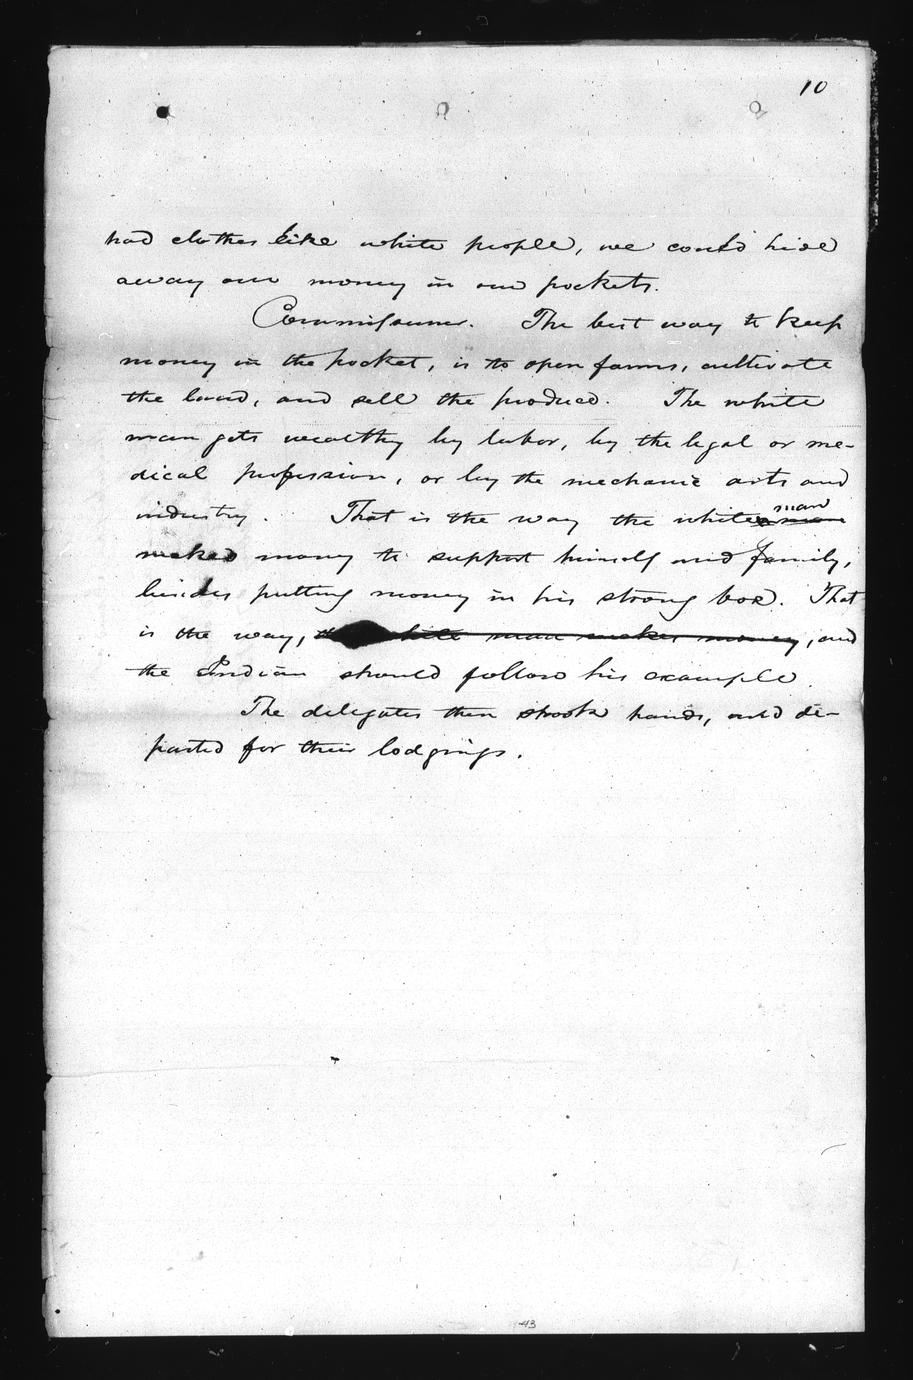 10
had clothes like white people, we could hide
away our money in our pockets.
Commissioner. The best way to keep
money in the pocket, is to open farms, cultivate
the land, and sell the produce. The white
man gets wealthy by labor, by the legal or me-
dical profession, or by the mechanic arts and
industry. That is the way the white man
makes money to support himself and family,
besides putting money in his strong box. That
is the way, the white man makes money, and
the Indian should follow his example
The delegates then shook hands, and de-
parted for their lodgings.
43